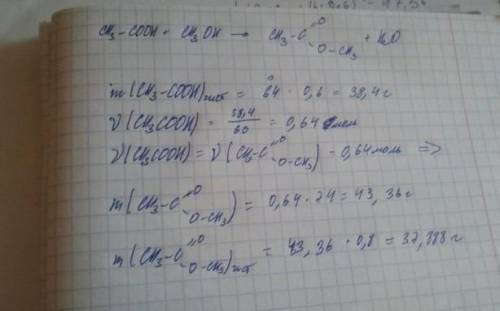 CH₃-COOH + CH₃OH → CH₃-C(=O)-O-CH₃ + H₂O
m(CH₃-COOH) = 64 · 0,6 = 38,4 г
ν(CH₃COOH) = 38,4/60 = 0,64 моль
ν(CH₃COOH) = ν(CH₃-C(=O)-O-CH₃) - 0,64 моль ⇒
m(CH₃-C(=O)-O-CH₃) = 0,64 · 74 = 43,36 г
m(CH₃-C(=O)-O-CH₃) = 43,36 · 0,8 = 37,888 г